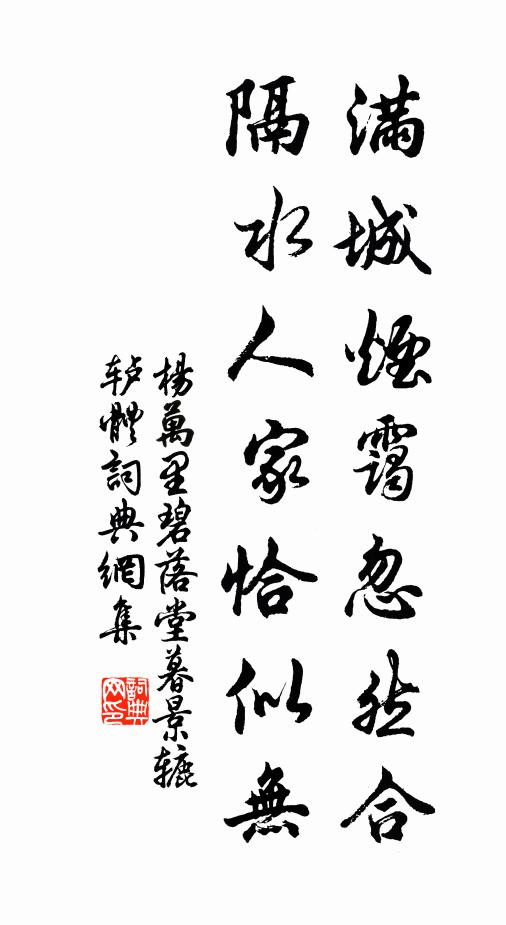 滿城煙靄忽然合
隔水人家恰似無
楊萬里碧落堂暮景辘
轳體詞典網集
詞典
网印